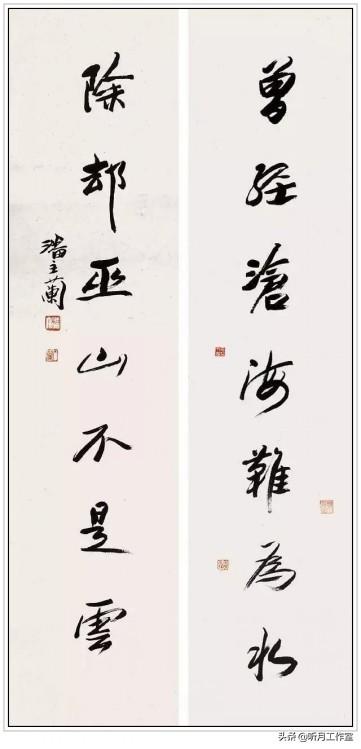 曾經滄海難為水
除却巫山不是雲
潘主蘭
头条@听月工作室